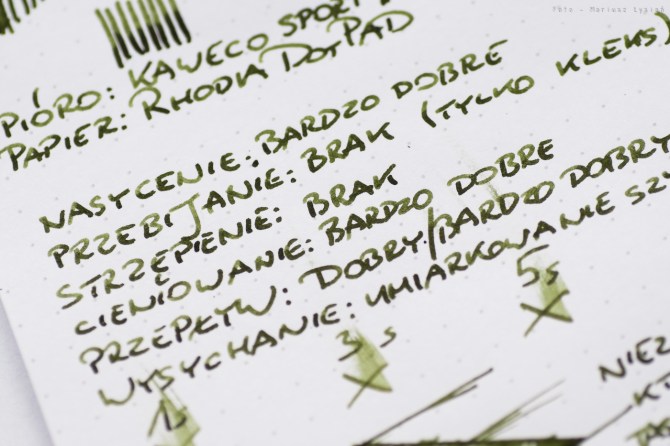 Foto - Mariusz
PIÓRO: KAWECO SPORT
PAPIER: RHODIA DOTPAD
NASYCENIE: BARDZO DOBRE
PRZEBIJANIE: BRAK (TYLKO KLEKS)
STRZĘPIENIE: BRAK
CIENIOWANIE: BARDZO DOBRE
PRZEPŁYW: DOBRY/BARDZO DOBRY
WYSYCHANIE: UMIARKOWANIE
3s 5s